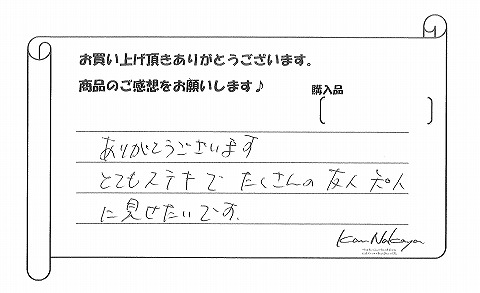 お買い上げ頂きありがとうございます。
商品のご感想をお願いします♪
購入品
ありがとうございます
とてもステキで たくさんの 友人 知人
に見せたいです。
Kan Nakaya